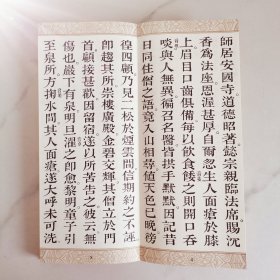 師居安國寺道德昭著懿宗親臨法席賜沉
香為法座恩渥甚厚自爾忽生人面瘡於膝
上眉目口齒俱備每以飲食餧之則開口吞
啖與人無異徧召名醫皆拱手默默因記昔
日同住僧之語竟入山相尋值天色已晚彷
徨四顧乃見二松於煙雲間信期約之不誣
即趨其所崇樓廣殿金碧交輝其僧立於門
首顧接甚歡因留宿遂以所苦告之彼云無
傷也巖下有泉明旦濯之即愈黎明童子引
至泉所方掬水間其人面瘡遂大呼未可洗